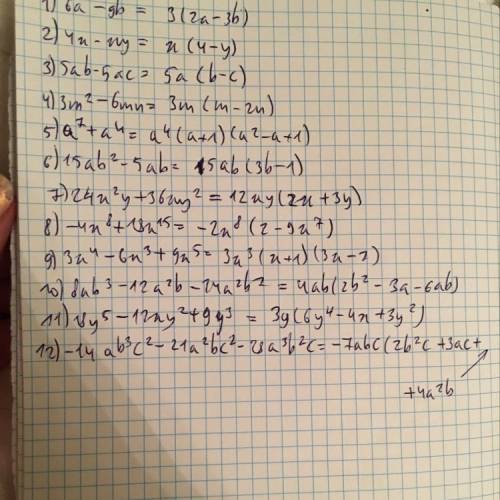 1) 6a - 9b = 3(2a-3b)
2) 4x - xy = x(4-y)
3) 5ab-5ac = 5a(b-c)
4) 3m² - 6mn = 3m(m-2n)
5) a⁷ + a⁴ = a⁴(a+1)(a²-a+1)
6) 15ab² - 5ab = 5ab(3b-1)
7) 24x²y + 36xy² = 12xy(2x+3y)
8) -4x⁸ + 18x¹⁵ = -2x⁸(2-9x⁷)
9) 3x⁴ - 6x³ + 9x⁵ = 3x³(x+1)(3x-2)
10) 8ab³ - 12a²b - 24a²b² = 4ab(2b² - 3a - 6ab)
11) 18y⁵ - 12xy² + 9y³ = 3y(6y⁴ - 4x + 3y²)
12) -14ab³c² - 21a²bc² - 28a³b²c = -7abc(2b²c + 3ac +
+4a²b